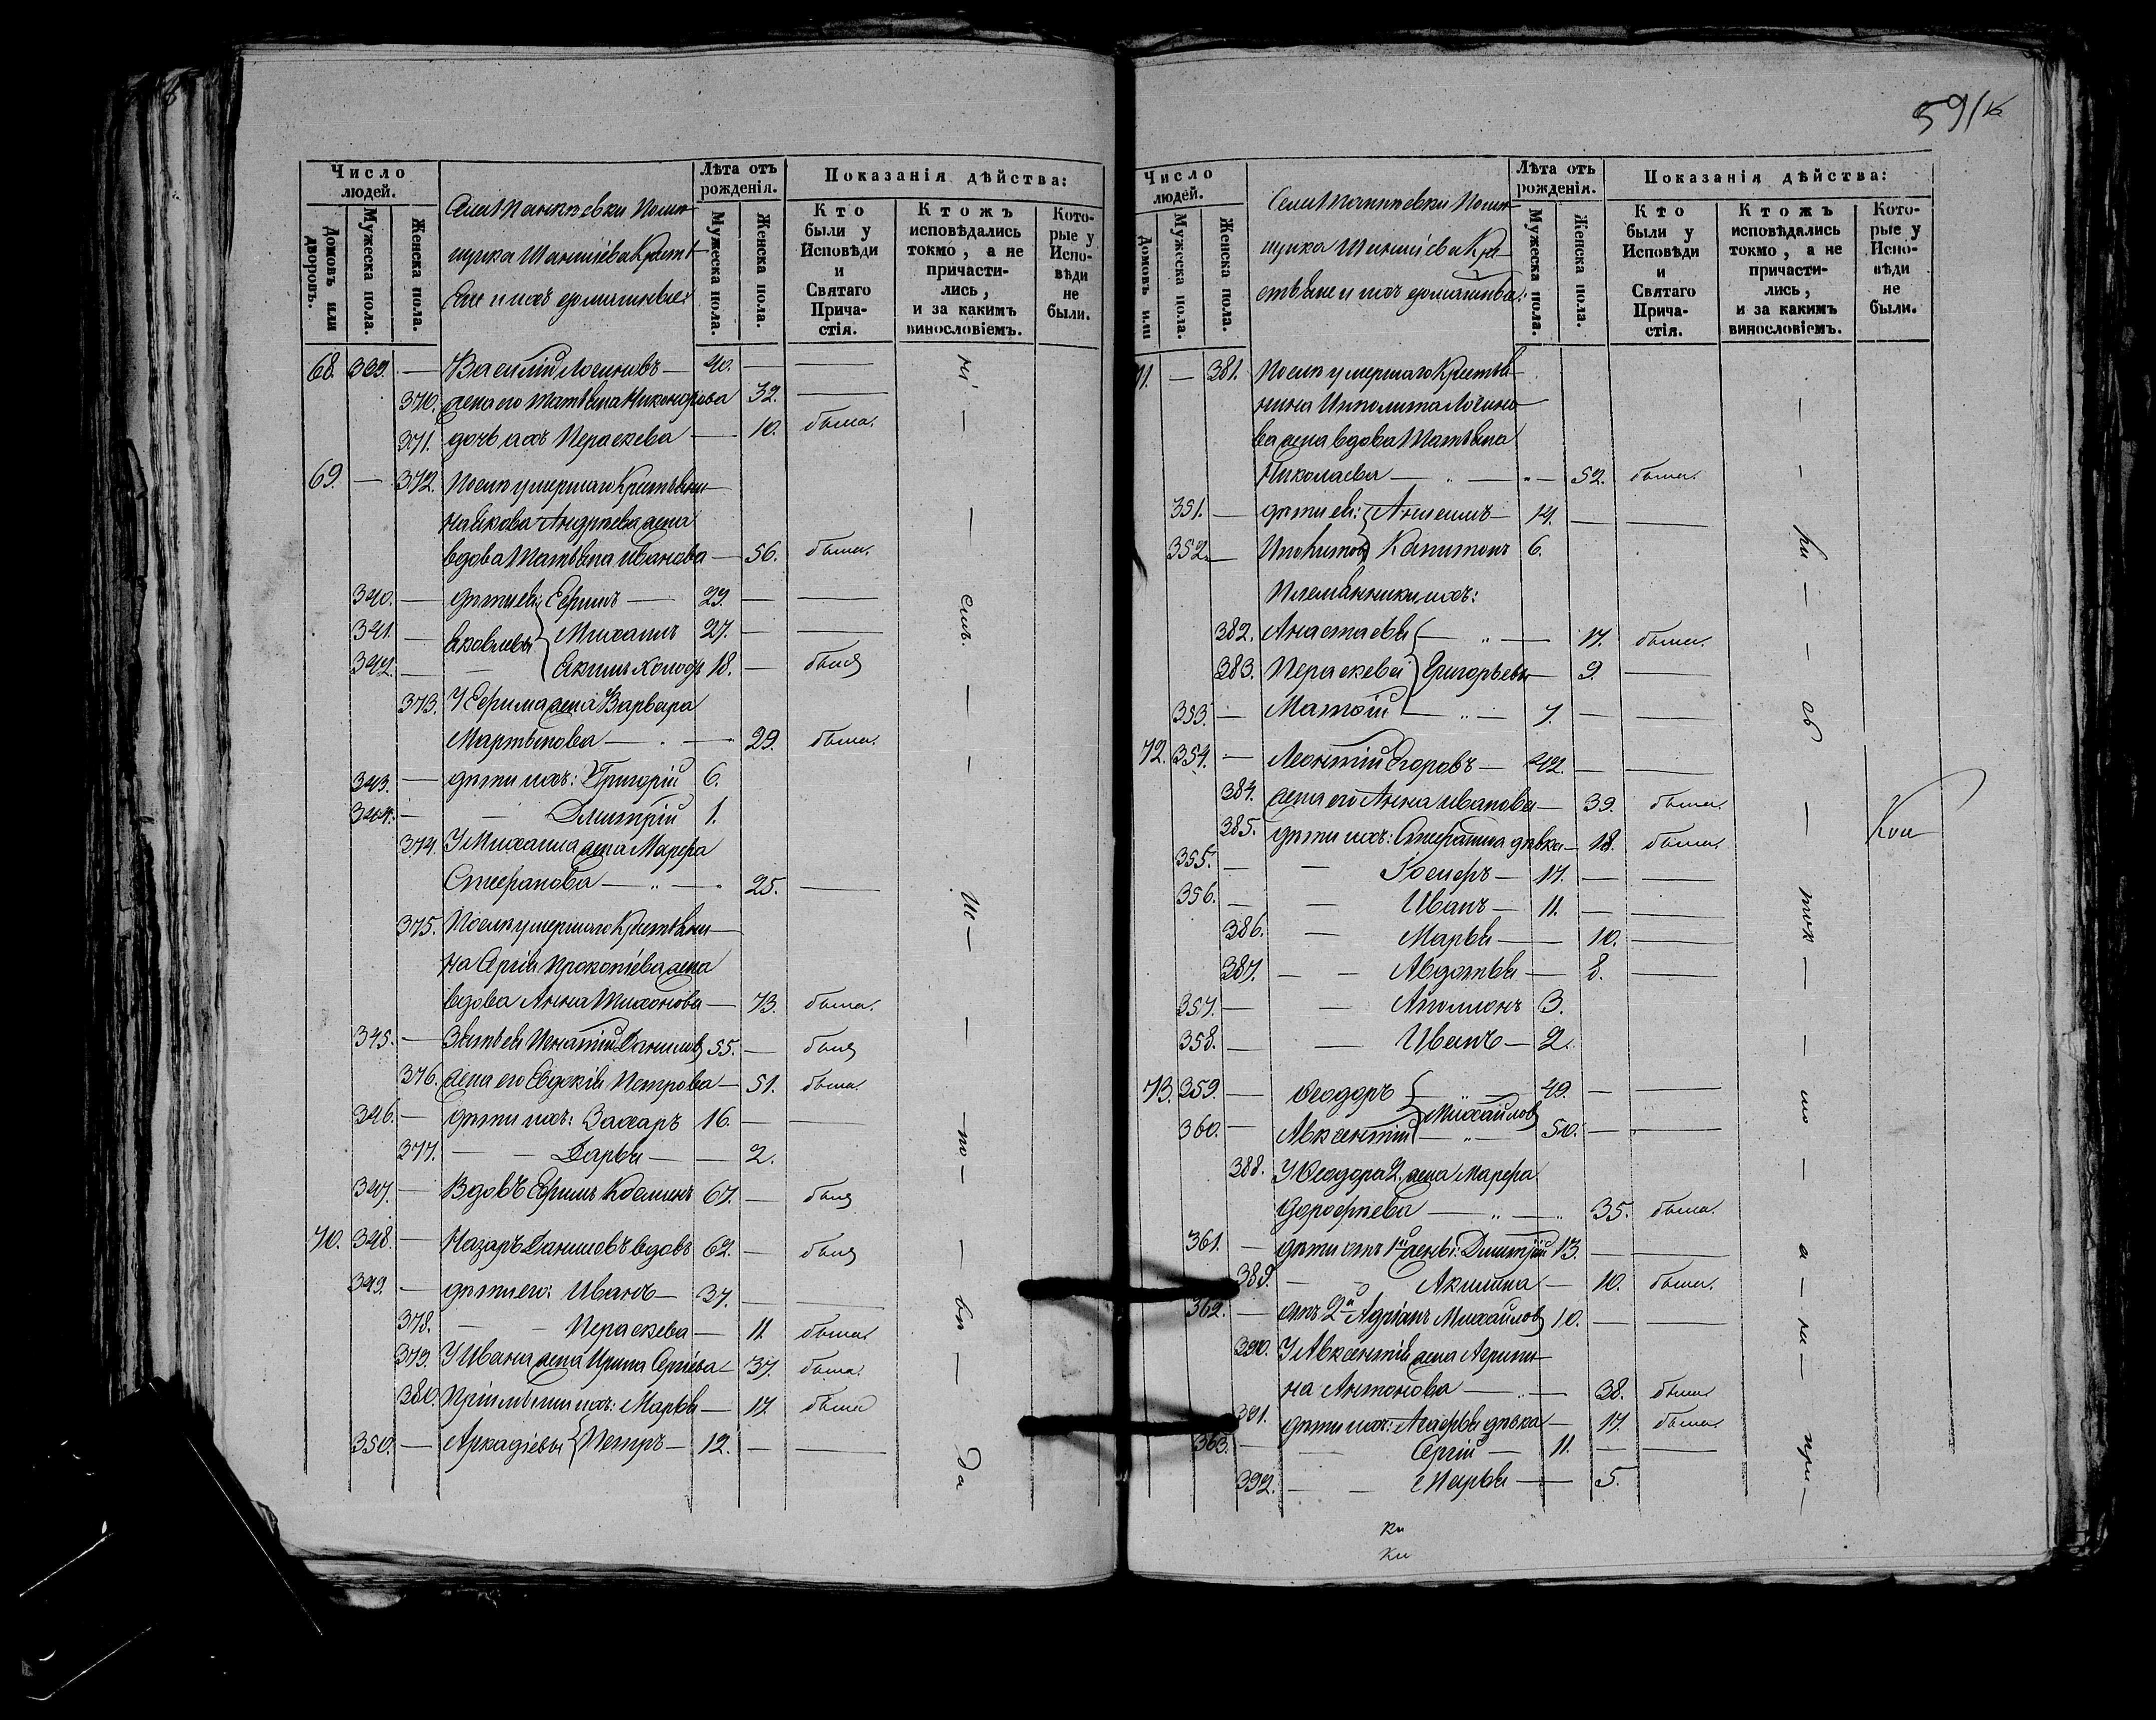 591
Число людей.
Домовъ или дворовъ.
Мужеска пола.
Женска пола.
Лѣта отъ рожденія.
Мужеска пола.
Женска пола.
Показанія дѣйства:
Кто были у Исповѣди и Святаго Причастія.
Ктожъ исповѣдались токмо, а не причастились, и за какимъ винословіемъ.
Которые у Исповѣди не были.
68. 339. — Василій Логиновъ — 40. —
370. жена его Татьяна Никонорова 32. —
371. дочь ихъ Параскева — 10. была.
69. — 372. Послѣ умершаго Крестьяни-
на Якова Андреева жена
вдова Татьяна Иванова — 56. была.
340. — дѣти ея: Ефимъ — 29. —
341. — Яковлевы Михаилъ 27. —
342. — Акимъ холос 18. — былъ
373. У Ефима жена Варвара
Мартынова — 29. была.
343. — дѣти ихъ: Григорій 6.
344. — Димитрій 1.
374. У Михаила жена Марфа
Стефанова — 25. —
375. Послѣ умершаго Крестьяни-
на Сергія Прокопіева жена
вдова Анна Тихонова — 73. была.
345. — Зять ея Игнатій Даниловъ 55. — былъ
376. жена его Евдокія Петрова — 51. была.
346. — дѣти ихъ: Захаръ 16. —
377. — Дарья — 2.
347. — Вдовъ Ефимъ Козминъ 67. — былъ
70. 348. — Назаръ Даниловъ вдовъ 62. — былъ
349. — дѣти его: Иванъ — 37. —
378. — Параскева — 11. была.
379. У Ивана жена Ирина Сергіева — 37. была.
380. Пріемыши ихъ: Марья — 17. была
350. — Аркадіевы Петръ — 12. —
Число людей.
Домовъ или
Мужеска пола.
Женска пола.
Лѣта отъ рожденія.
Мужеска пола.
Женска пола.
Показанія дѣйства:
Кто были у Исповѣди и Святаго Причастія.
Ктожъ исповѣдались токмо, а не причастились, и за какимъ винословіемъ.
Которые у Исповѣди не были.
71. — 381. Послѣ умершаго Крестья-
нина Ипполита Логино-
ва жена вдова Татьяна
Николаева — 52. была.
351. — дѣти ея: 14. —
352. — Капитонъ 6.
Племянники ихъ:
382. Анастасья — 17. была.
383. Параскева Григорьевы — 9. —
353. — Матѳій — 7. —
72. 354. — Леонтій Егоровъ — 42. —
384. жена его Анна Иванова — 39. была.
385. дѣти ихъ: Стефанида дѣвка — 18. была.
355. — Іосифъ — 17. —
356. — Иванъ — 11. —
386. — Марья — 10. —
387. — Авдотья — 8. —
357. — Аполлонъ 3.
358. — Иванъ — 2.
73. 359. — Ѳеодоръ 49. —
Михайловы
360. — Авксентій — 50. —
388. У Ѳеодора 2. жена Марфа
Дорофеева — 35. была.
361. — дѣти отъ 1й жены: Димитрій 13. —
389. — Акилина — 10. была.
362. — отъ 2й Адріанъ Михайловъ 10. —
390. У Авксентія жена Агрипи-
на Антонова — 38. была
391. дѣти ихъ: Агафья дѣвка — 17. была.
363. — Сергій — 11. —
392. — Марья — 5.